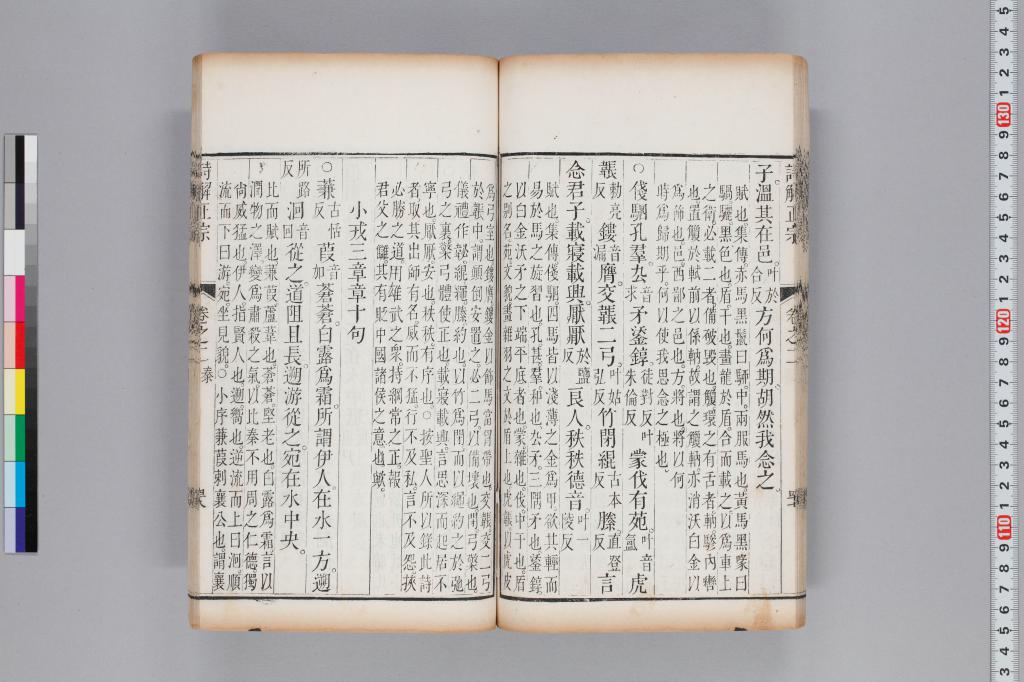 子溫其在邑叶於合反方何爲期胡然我念之
賦也集傳赤馬黑鬣曰駵中兩服馬也黃馬黑喙曰
騧驪黑色也盾干也畫龍於盾合而載之以爲車上
之衛必載二者備破毀也觼環之有舌者軜驂內轡
也置觼於軾前以係軜故謂之觼軜亦消沃白金以
爲飾也邑西鄙之邑也方將也將以何
時爲歸期乎何以使我思念之極也
○俴駟孔羣厹音求矛鋈錞徒對反叶朱倫反蒙伐有苑叶音氳虎
韔敕亮反鏤音漏膺交韔二弓叶姑弘反竹閉緄古本反縢直登反言
念君子載寢載興厭厭於鹽反良人秩秩德音叶一陵反
賦也集傳俴駟四馬皆以淺薄之金爲甲欲其輕而
易於馬之旋習也孔甚羣和也厹矛三隅矛也鋈錞
以白金沃矛之下端平底者也蒙雜也伐中干也盾
之別名苑文貌畫雜羽之文於盾上也虎韔以虎皮
爲弓室也鏤膺鏤金以飾馬當胷帶也交韔交二弓
於韔中謂顛倒安置之必二弓以備壞也閉弓檠也
儀禮作䪐緄繩縢約也以竹爲閉而以繩約之於弛
弓之裏檠弓體使正也載寢載興言思深而起居不
寧也厭厭安也秩秩有序也○按聖人所以錄此詩
者取其出師有名威而不猛行不及私言不及怨挾
必勝之道用雄武之衆持綱常之正報
君父之讎其有貶中國諸侯之意也歟
小戎三章章十句
○蒹古恬反葭音加蒼蒼白露爲霜所謂伊人在水一方遡
所路反洄音回從之道阻且長遡游從之宛在水中央
比而賦也蒹葭蘆葦也蒼蒼堅老也白露爲霜言以
潤物之澤變爲肅殺之氣以比秦不用周之仁德獨
尙威猛也伊人指賢人也遡嚮也逆流而上曰洄順
流而下曰游宛坐見貌○小序蒹葭刺襄公也謂襄
詩解正宗 卷之二 秦